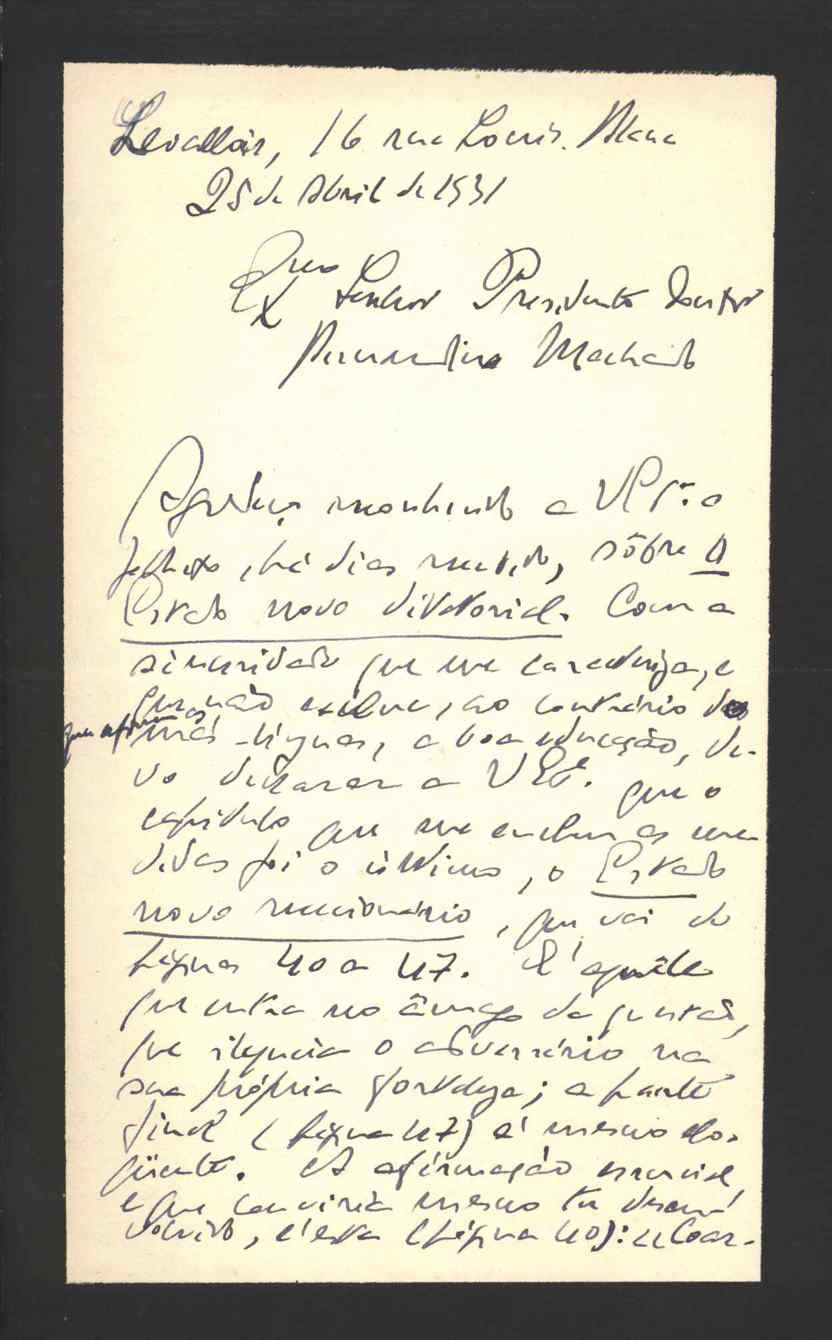 Levallois, 16 rue Louis. Blanc
25 de Abril de 1931
Exmo Senhor Presidente Doutor
Bernardino Machado
Agradeço reconhecido a V Ex.ª o
folheto, há dias recebido, sôbre O
Estado novo ditatorial. Com a
sinceridade que me caracteriza, e
que não exclue, ao contrário do
que afirmam as
más-línguas, a boa educação, de-
vo declarar a V Ex.ª que o
capítulo que me encheu as me-
didas foi o último, o Estado
novo reaccionário, que vai de
páginas 40 a 47. É aquele
que entra no âmago da questão,
que silencia o adversário na
sua própria fortaleza; a parte
final (página 47) é mesmo elo-
qüente. A afirmação essencial,
e que conviria mesmo ter desen-
volvido, é esta (página 40): «Coar-